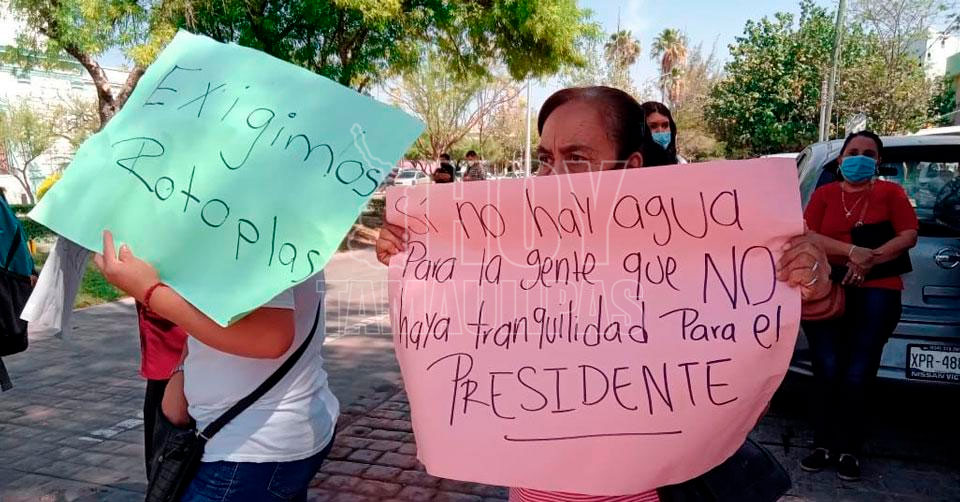 Exigimos
Rotoplas
Si no hay agua
Para la gente que NO
haya tranquilidad Para el
PRESIDENTE
HOY
TAMAULIPAS
XPR-488
NISSAN VIC